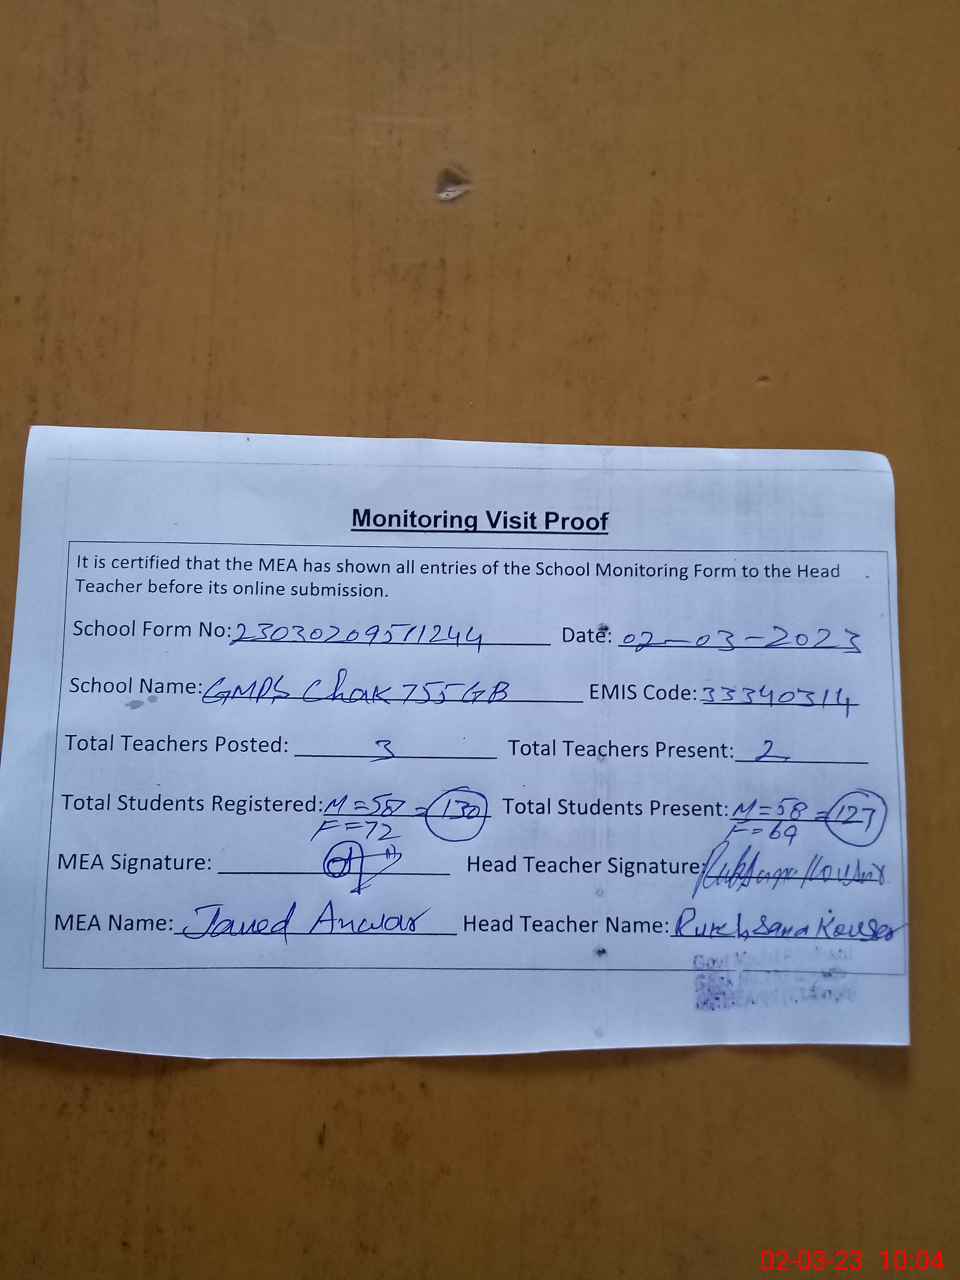 Monitoring Visit Proof
It is certified that the MEA has shown all entries of the School Monitoring Form to the Head
Teacher before its online submission.
School Form No: 23030209511244 Date: 02-03-2023
School Name: GMPS Chak 755 GB EMIS Code: 33340314
Total Teachers Posted: 3 Total Teachers Present: 2
Total Students Registered: M=58 =130 Total Students Present: M=58 =127
F=72 F=69
MEA Signature: Head Teacher Signature:
MEA Name: Javed Anwar Head Teacher Name: Rukhsana Kouser
Govt
02-03-23 10:04